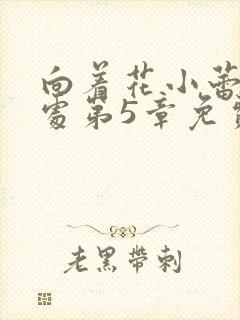 向着花小蕾
处第5章免费
老黑带刺